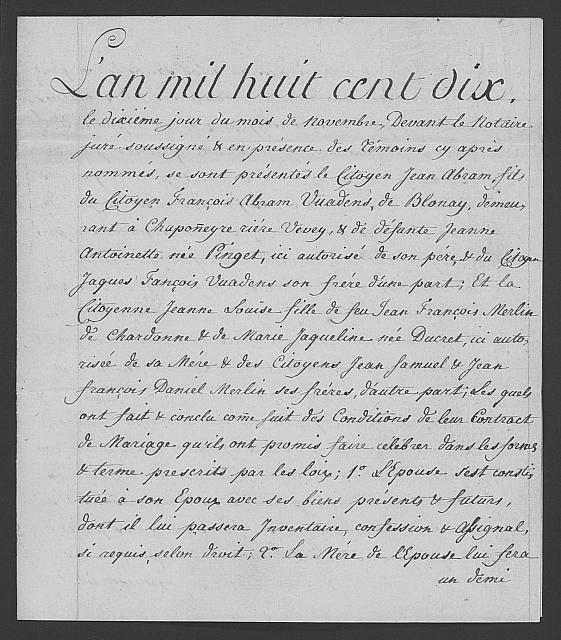 L'an mil huit cent dix.
le dixiéme jour du mois de Novembre, Devant le Notaire
juré soussigné & en présence des témoins cy aprés
nommés, se sont présentés le Citoyen Jean Abram fils
du Citoyen François Abram Vuadens, de Blonay, demeu
rant à Chuponeyre riére Vevey, & de défunte Jeanne
Antoinette née Pinget, ici autorisé de son pére, & du Citoyen
Jaques Fançois Vuadens son frére d'une part; Et la
Citoyenne Jeanne Louise fille de feu Jean François Merlin
de Chardonne & de Marie Jaqueline née Ducret, ici auto,
risée de sa Mére & des Citoyens Jean Samuel & Jean
françois Daniel Merlin ses fréres, d'autre part; Les quels
ont fait & conclu come suit dés Conditions de leur Contract
de Mariage qu'ils ont promis faire célébrer dans les formes
& terme prescrits par les loix; 1.º L'Epouse s'est consti,
tuée à son Epoux avec ses biens présents & futurs,
dont il lui passera Inventaire, confession & Assignal,
si requis, selon droit; 2.º La Mére de l'Epouse lui fera
un demi